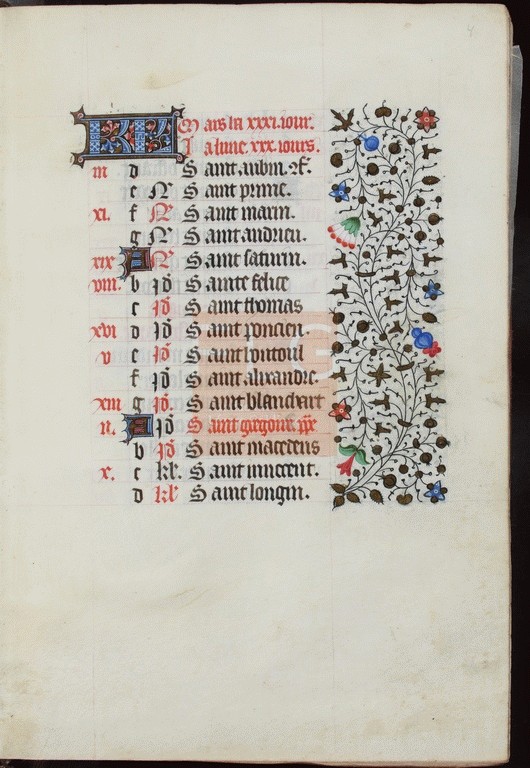 KL Mars la xxxi. iour.
La lune xxx. iours.
iii d Saint aubin. ɛ̃.
e N Saint prime.
xi. f N Saint marin.
g N Saint andrieu.
xix A N Saint saturin.
viii. b id Sainte felice
c id Saint thomas
xvi d id Saint poncien.
v e id Saint
f id Saint alixandre.
xiii g id Saint blanchart
ii. A id Saint gregoire. pp̄e
b id Saint macedens
x. c kl. Saint innocent.
d kl Saint longin.
LG